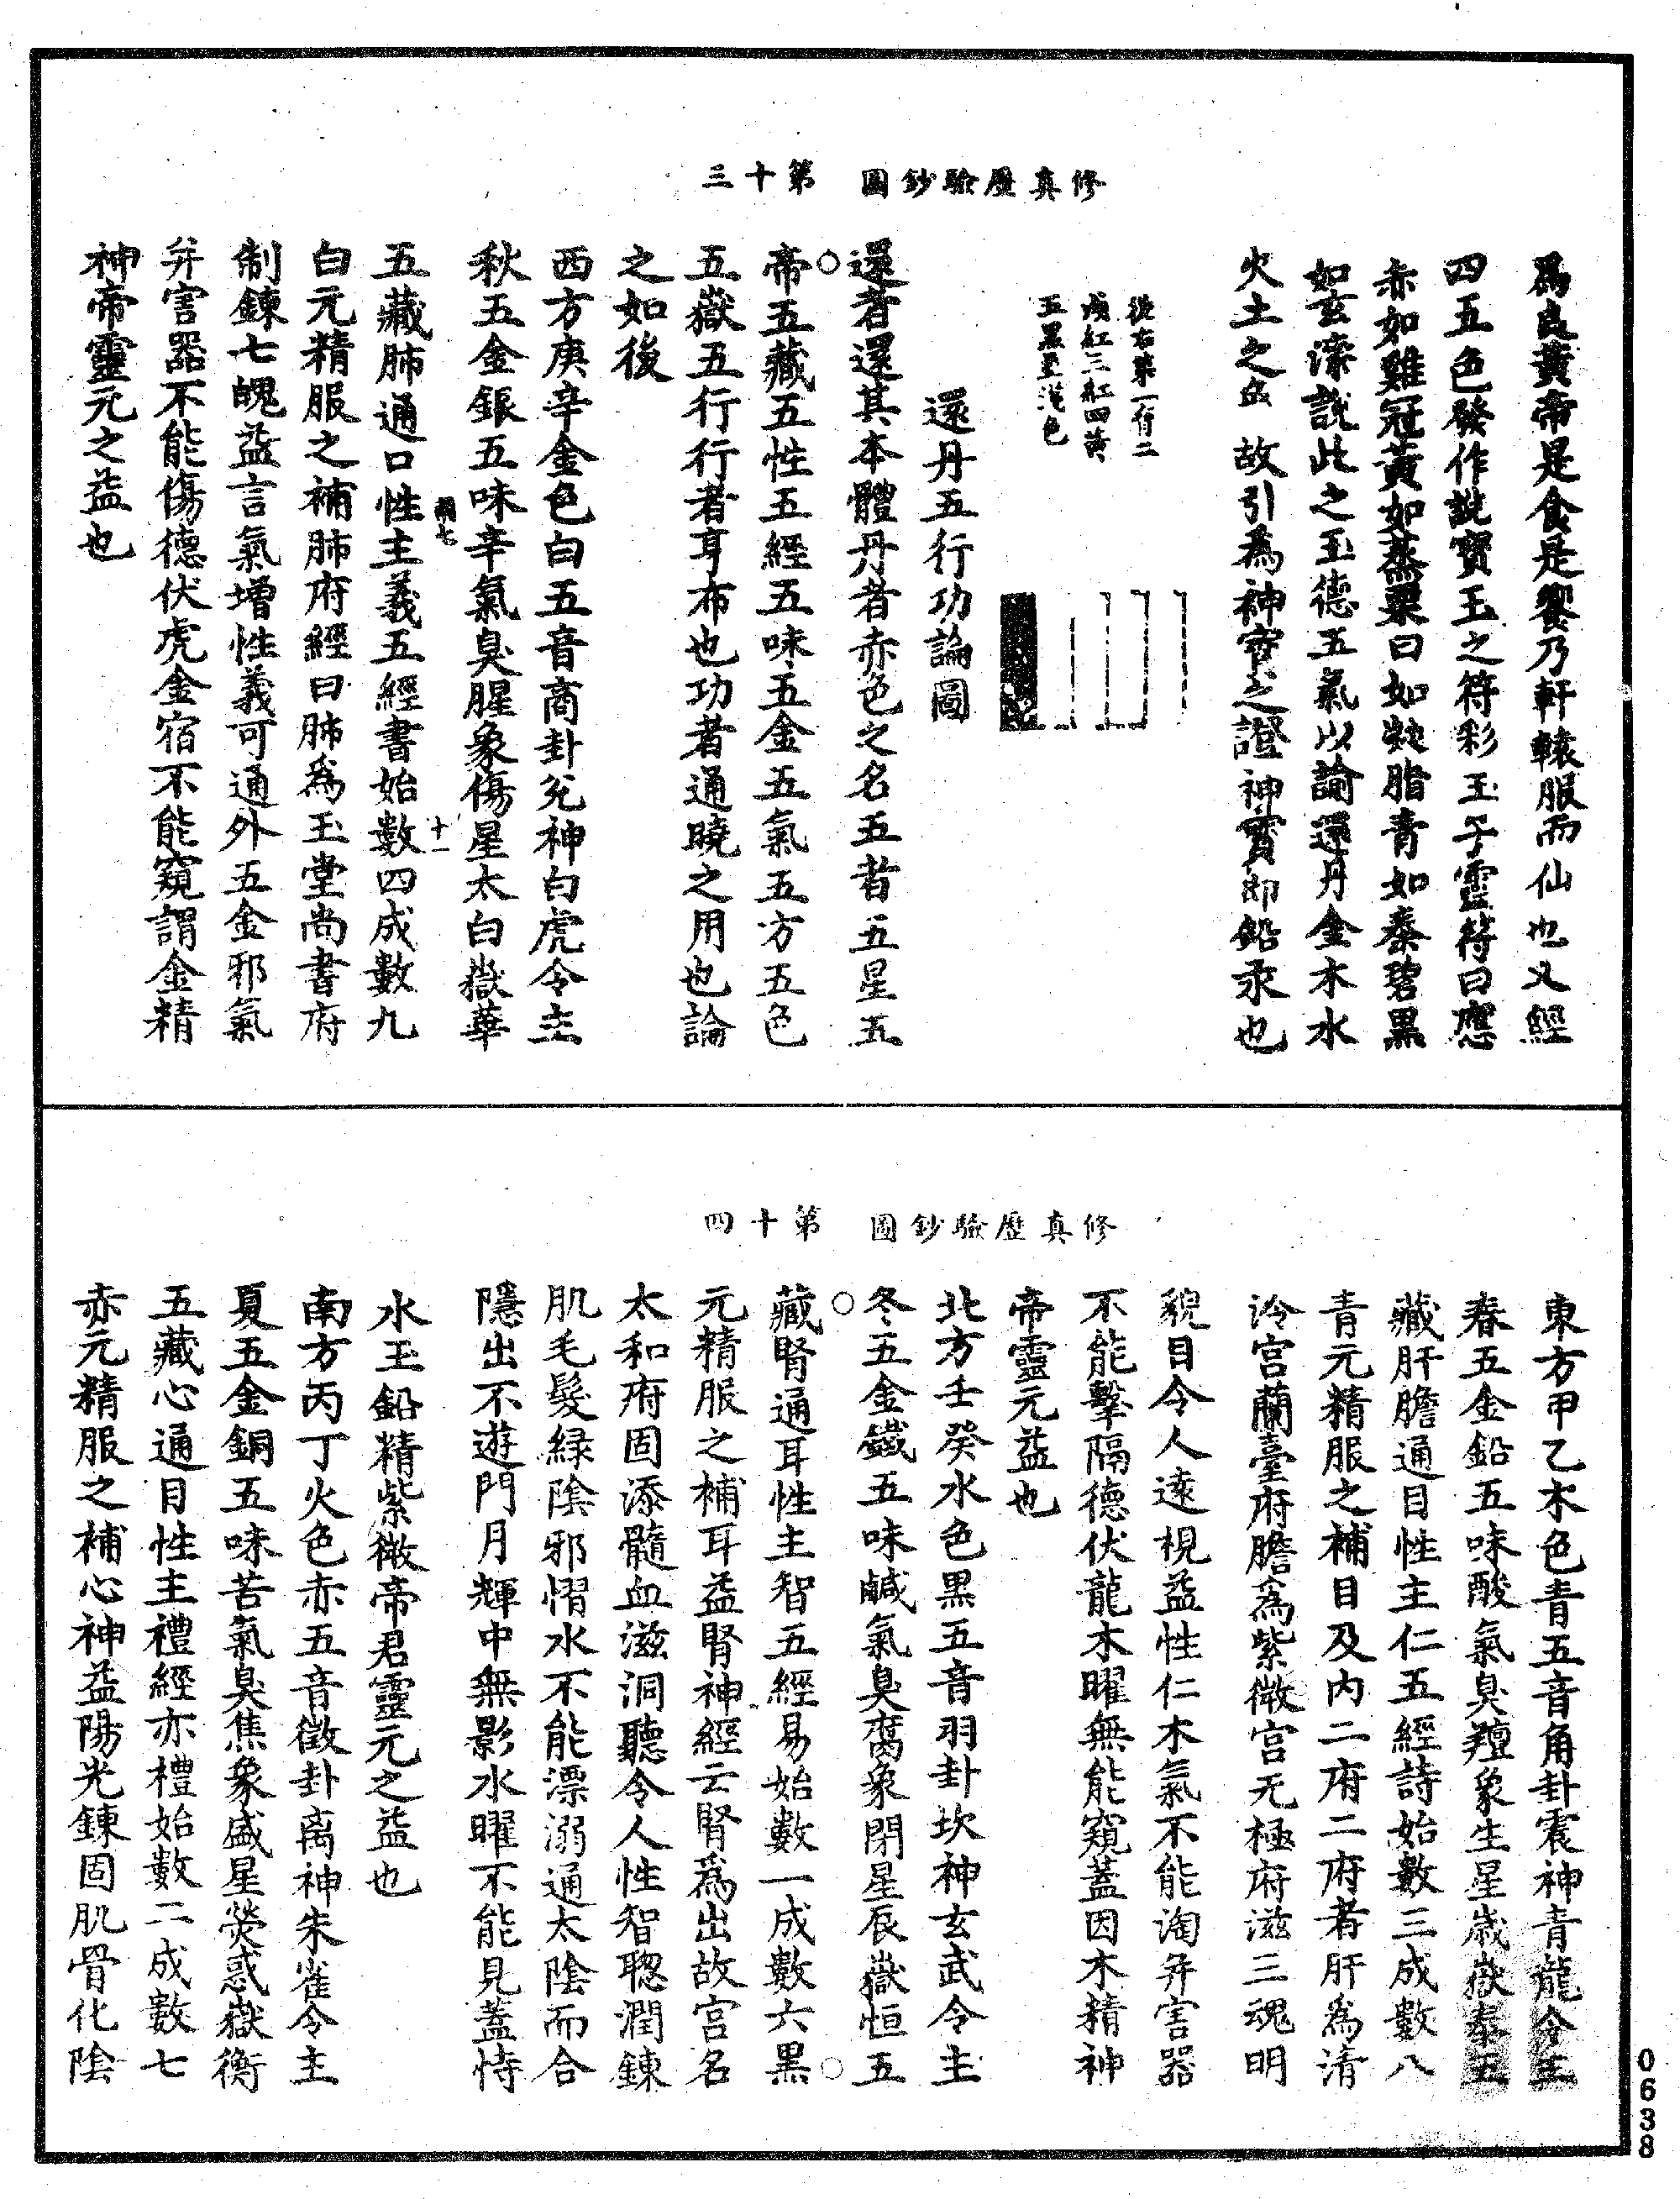 修真歷驗鈔圖　第十三
爲良黃帝是食是饗乃軒轅服而仙也又經
四五色發作說寳玉之符彩玉子靈符曰應
赤如雞冠黃如蒸粟白如凝脂青如㯃碧黑
如玄漆說此之玉德五氣以諭還丹金木水
火土之色　故引爲神寳之證神寳即鉛汞也
從右第一　二
淺紅三紅四黃
五黑至　色
還丹五行功論圖
還者還其本體丹者赤色之名五者五星五
帝五藏五性五經五味五金五氣五方五色
五嶽五行行者寻布也功者通曉之用也論
之如後
西方庚辛金色白五音商卦兊神白虎令主
秋五金銀五味辛氣臭腥象傷星太白嶽華
七
十一
五藏肺通口性主義五經書始數四成數九
白元精服之補肺府經曰肺爲玉堂尚書府
制鍊七魄益言氣增性義可通外五金邪氣
并害器不能傷德伏虎金宿不能窺謂金精
神帝靈元之益也
修真歷驗鈔圖　第十四
東方甲乙木色青五音角卦震神青龍令主
春五金鉛五味酸氣臭羶象生星歲嶽泰五
藏肝膽通目性主仁五經詩始數三成數八
青元精服之補目及內二府二府者肝爲清
泠宮蘭臺府膽爲紫微宮无極府滋三魂明
貌目令人遠視益性仁木氣不能淘并害器
不能擊隔德伏龍木曜無能窺蓋因木精神
帝靈元益也
北方壬癸水色黑五音羽卦坎神玄武令主
冬五金鐵五味鹹氣臭腐象閉星辰嶽恒五
藏腎通耳性主智五經易始數一成數六黑
元精服之補耳益腎神經云腎爲出故宮名
太和府固添髓血滋洞聽令人性智聦潤鍊
肌毛髮緑陰邪慴水不能漂溺通太陰而合
隱出不遊門月輝中無影水曜不能見蓋恃
水玉鉛精紫微帝君靈元之益也
南方丙丁火色赤五音徵卦离神朱雀令主
夏五金銅五味苦氣臭焦象盛星熒惑嶽衡
五藏心通目性主禮經亦禮始數二成數七
赤元精服之補心神益陽光鍊固肌骨化陰
0638